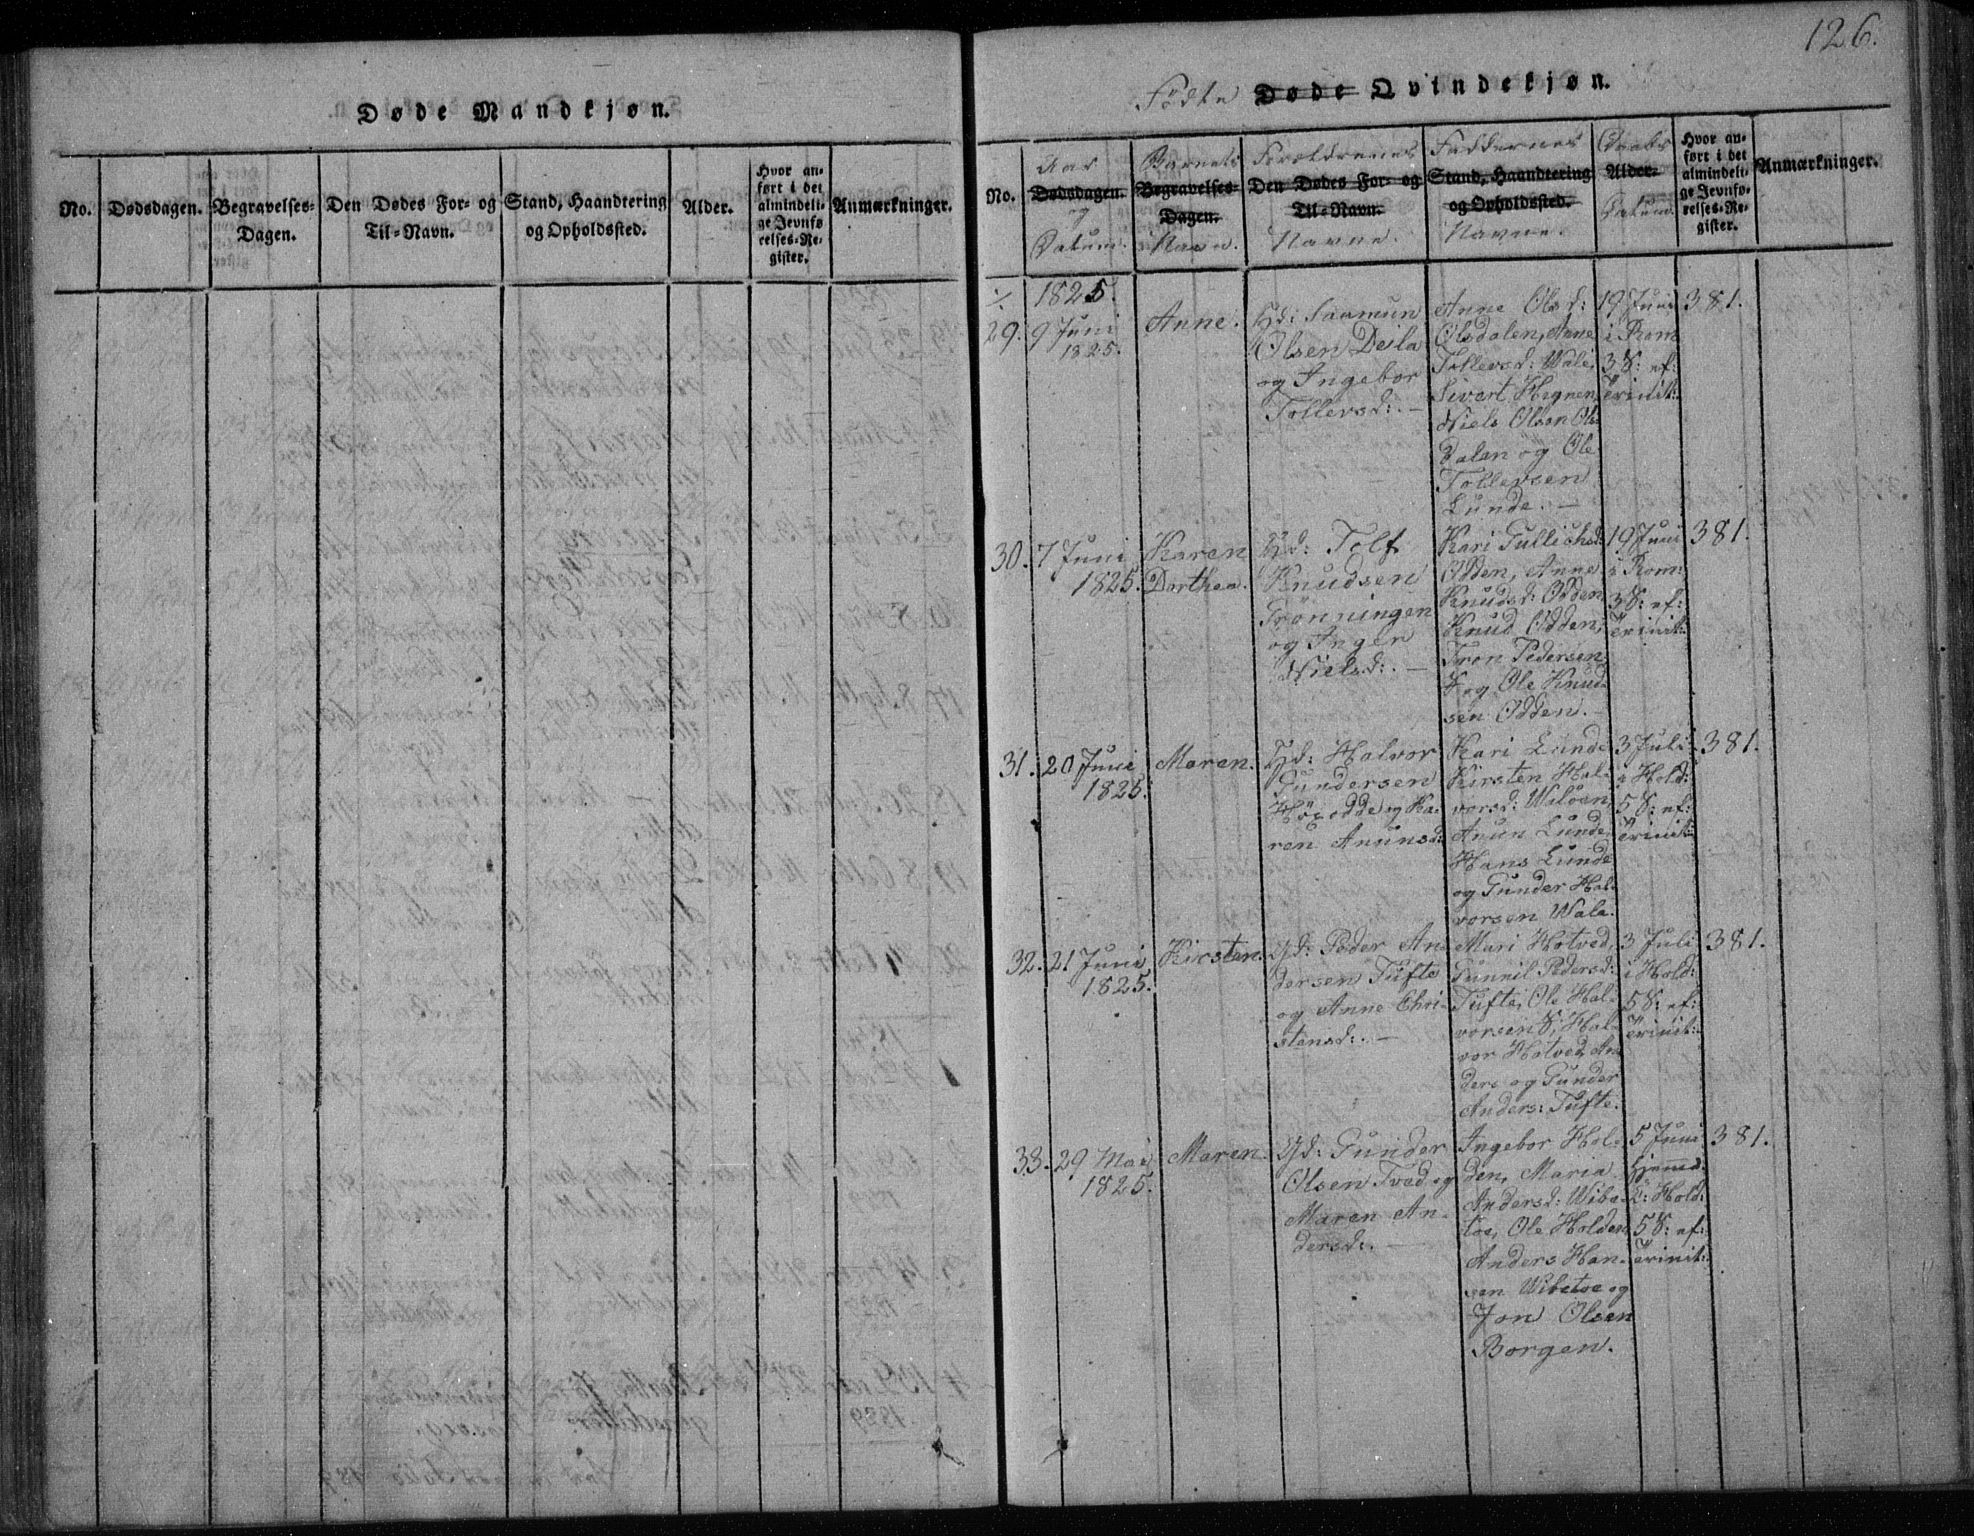 126.
Døde Mandkjøn.
No.
Dødsdagen.
Begravelses-
Dagen.
Den Dødes For- og
Til-Navn.
Stand, Haandtering
og Opholdssted.
Alder.
Hvor an-
ført i det
almindeli-
ge Jevnfø
relses-Re-
gister.
Anmærkninger.
Fødte Døde Qvindekjøn.
No.
Aar
Dødsdagen.
og
Datum.
Barnets
Begravelses-
Dagen.
Navn.
Forældrenes
Den Dødes For- og
Til-Navn.
Navne.
Faddernes
Stand, Haandtering
og Opholdssted.
Navne.
Daabs
Alder.
Datum.
Hvor an-
ført i det
almindeli-
ge Jevnfø-
relses-Re-
gister.
Anmærkninger.
1825.
29.
9 Juni
1825.
Anne.
Gd: Saamun
Olsen Deila
og Ingebor
Tollevsd: -
Anne Olsd:
Olsdalen, Anne
Tollevsd: Wale,
Sivert Hegnen,
Niels Olsen Ols-
dalen og Ole
Tollevsen
Lunde. -
19 Juni
i Rom:
3 S: ef:
Trinit:
381.
30.
7 Juni
1825.
Karen
Dorthea.
Gd: Tolf
Knudsen
Grönningen
og Inger
Nielsd: -
Kari Gullichsd:
Odden, Anne
Knudsd: Odden,
Knud Odden,
Tron Pedersen
og Ole Knud-
sen Odden. -
19 Juni
i Rom:
3 S: ef:
Trinit:
381.
31.
20 Juni
1825.
Maren.
Gd: Halvor
Gundersen
Höxodde og Ka-
ren Anunsd:
Kari Lunde
Kirsten Hal-
vorsd: Wiloen,
Anun Lunde,
Hans Lunde
og Gunder Hal-
vorsen Wala.
3 Juli
i Hold:
5 S: ef:
Trinit:
381.
32.
21 Juni
1825.
Kirsten.
Gd: Peder An-
dersen Tufte
og Anne Chri-
stensd: -
Mari Hotved,
Gunnil Pedersd:
Tufte, Ole Hal-
vorsen, Hal-
vor Hotved, An-
ders og Gunder
Anders: Tufte.
3 Juli
i Hold:
5 S: ef:
Trinit:
381.
33.
29 Mai
1825.
Maren.
Gd: Gunder
Olsen Tved og
Maren An-
dersd: -
Ingebor Hol-
den, Maria
Andersd: Wibe-
toe, Ole Holden,
Anders Han-
sen Wibetoe og
Jon Olsen
Borgen.
5 Juni
Hjemd:
i Hold:
5 S: ef:
Trinit:
381.